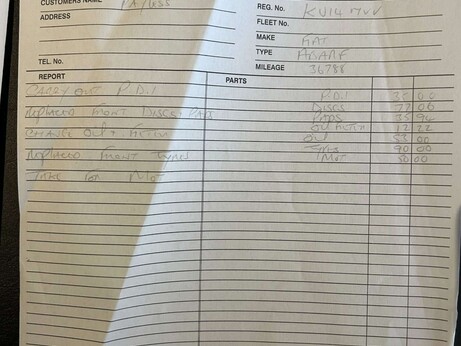 CUSTOMERS NAME PAYLESS
ADDRESS
TEL. No.
REG. No. KU14 MVV
FLEET No.
MAKE FIAT
TYPE ABARF
MILEAGE 36788
REPORT PARTS
CARRY OUT P.D.I P.D.I 30.00
REPLACED FRONT DISCS PADS DISCS 77.06
PADS 35.94
CHANGE OIL + FILTER OIL FILTER 12.22
OIL 55.00
REPLACED FRONT TYRES TYRES 90.00
TAKE FOR MOT MOT 50.00